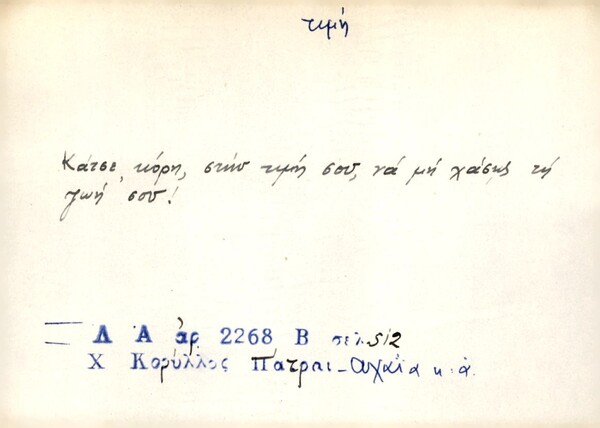 τιμή
Κάτσε, κόρη, στήν τιμή σου, νά μή χάσῃς τή
ζωή σου!
Λ Α ἀρ. 2268 Β σελ. 512
Χ Κορύλλος Πάτραι - Ἀχαΐα κ. ἀ.